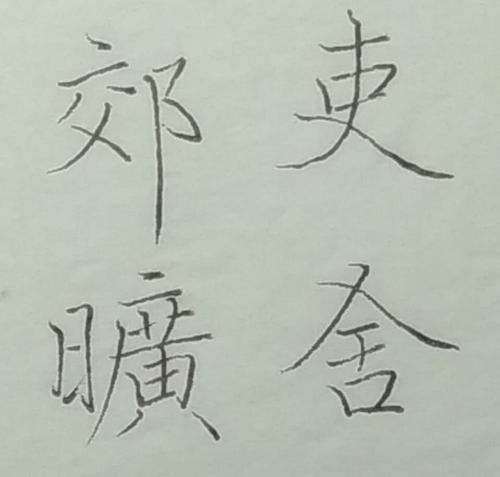 吏舍
郊曠